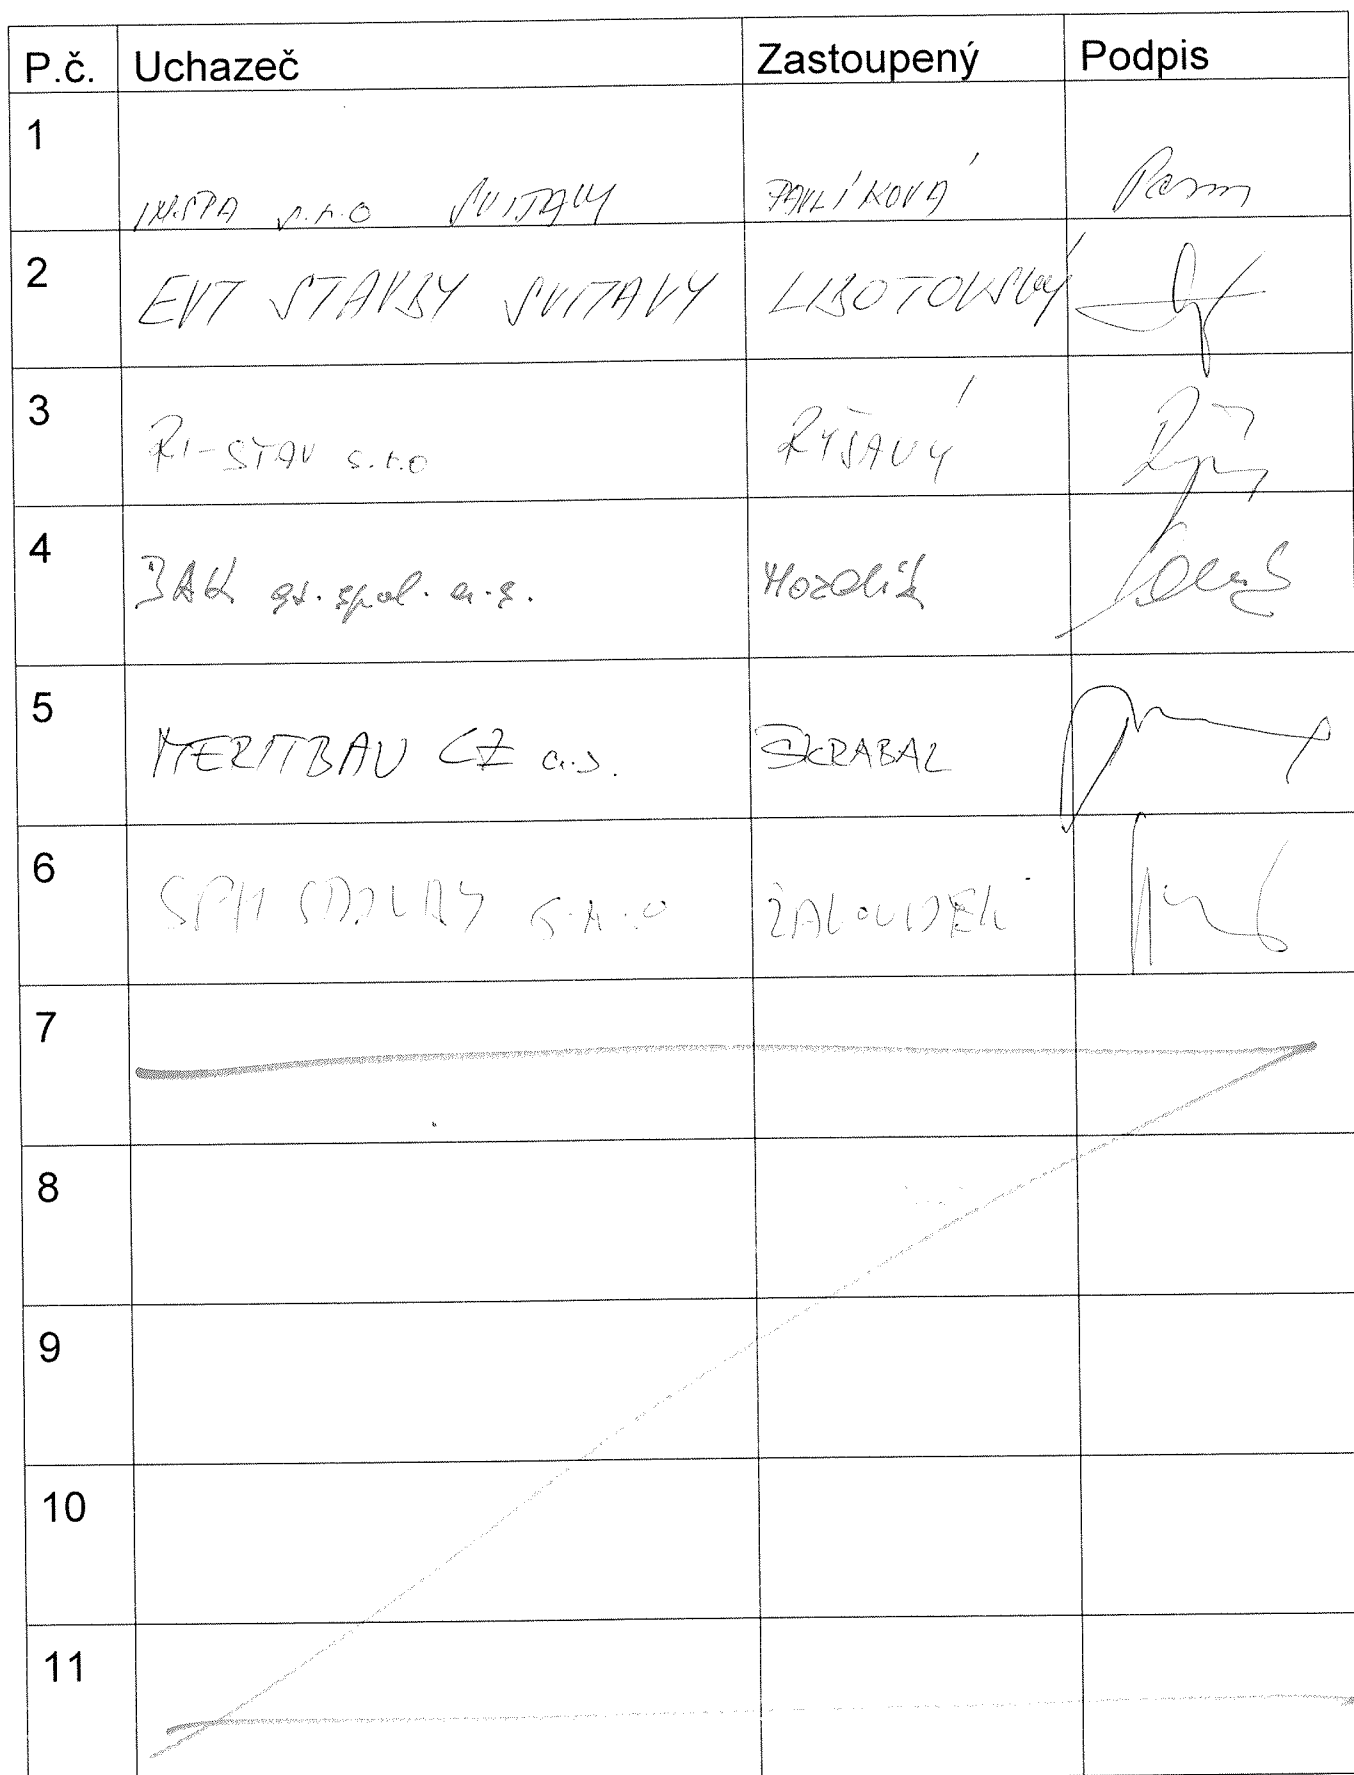 P.č. Uchazeč Zastoupený Podpis
1 s.r.o SVITAVY PAVLÍKOVÁ
2 EVT STAVBY SVITAVY LIBOTOVSKÝ
3 RI-STAV s.r.o RYŠAVÝ
4
5 MERITBAU CZ a.s. ŠKRABAL
6 STAVBY s.r.o ZALOUDEK
7
8
9
10
11